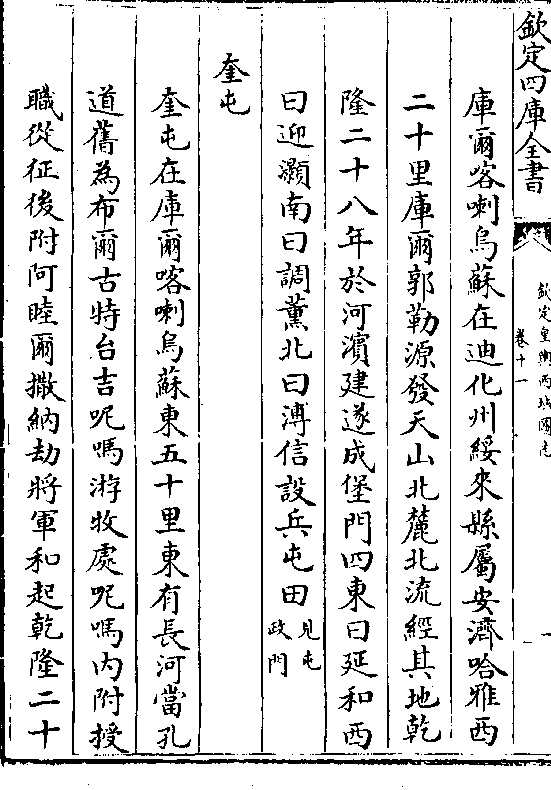 欽定四庫全書
欽定皇輿西域圖志
卷十一
一
庫爾喀喇烏蘇在迪化州綏來縣屬安濟哈雅西
二十里庫爾郭勒源發天山北麓北流經其地乾
隆二十八年於河濱建遂成堡門四東曰延和西
曰迎灝南曰調薰北曰溥信設兵屯田見屯政門
奎屯
奎屯在庫爾喀喇烏蘇東五十里東有長河當孔
道舊為布爾古特台吉呢嗎游牧處呢嗎内附授
職從征後附阿睦爾撒納劫將軍和起乾隆二十